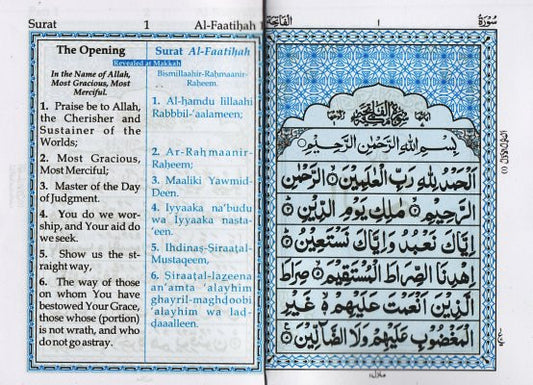 Surat 1 Al-Faatiḥah 1
The Opening
Surat Al-Faatiḥah
Revealed at Makkah
In the Name of Allah,
Most Gracious, Most
Merciful.
1. Praise be to Allah,
the Cherisher and
Sustainer of the
Worlds;
2. Most Gracious,
Most Merciful;
3. Master of the Day
of Judgment.
4. You do we wor-
ship, and Your aid do
we seek.
5. Show us the st-
raight way,
6. The way of those
on whom You have
bestowed Your Grace,
those whose (portion)
is not wrath, and who
do not go astray.
Bismillaahir-Raḥmaanir-
Raheem.
1. Al-ḥamdu lillaahi
Rabbbil-'aalameen;
2. Ar-Raḥmaanir-
Raheem;
3. Maaliki Yawmid-
Deen.
4. Iyyaaka na'budu
wa Iyyaaka nasta-
'een.
5. Ihdinaṣ-Ṣiraaṭal-
Mustaqeem,
6. Ṣiraaṭal-lazeena
an'amta 'alayhim
ghayril-maghḍoobi
'alayhim wa lad-
ḍaaalleen.
الفاتحة ١ سُورَة
بِسْمِ اللهِ الرَّحْمٰنِ الرَّحِيْمِ
اَلْحَمْدُ لِلّٰهِ رَبِّ الْعٰلَمِيْنَ ۙ١ الرَّحْمٰنِ
الرَّحِيْمِ ۙ٢ مٰلِكِ يَوْمِ الدِّيْنِ ۗ٣
اِيَّاكَ نَعْبُدُ وَاِيَّاكَ نَسْتَعِيْنُ ۗ٤
اِهْدِنَا الصِّرَاطَ الْمُسْتَقِيْمَ ۙ٥ صِرَاطَ
الَّذِيْنَ اَنْعَمْتَ عَلَيْهِمْ ۙ٦ غَيْرِ
الْمَغْضُوْبِ عَلَيْهِمْ وَلَا الضَّآلِّيْنَ ۧ٧